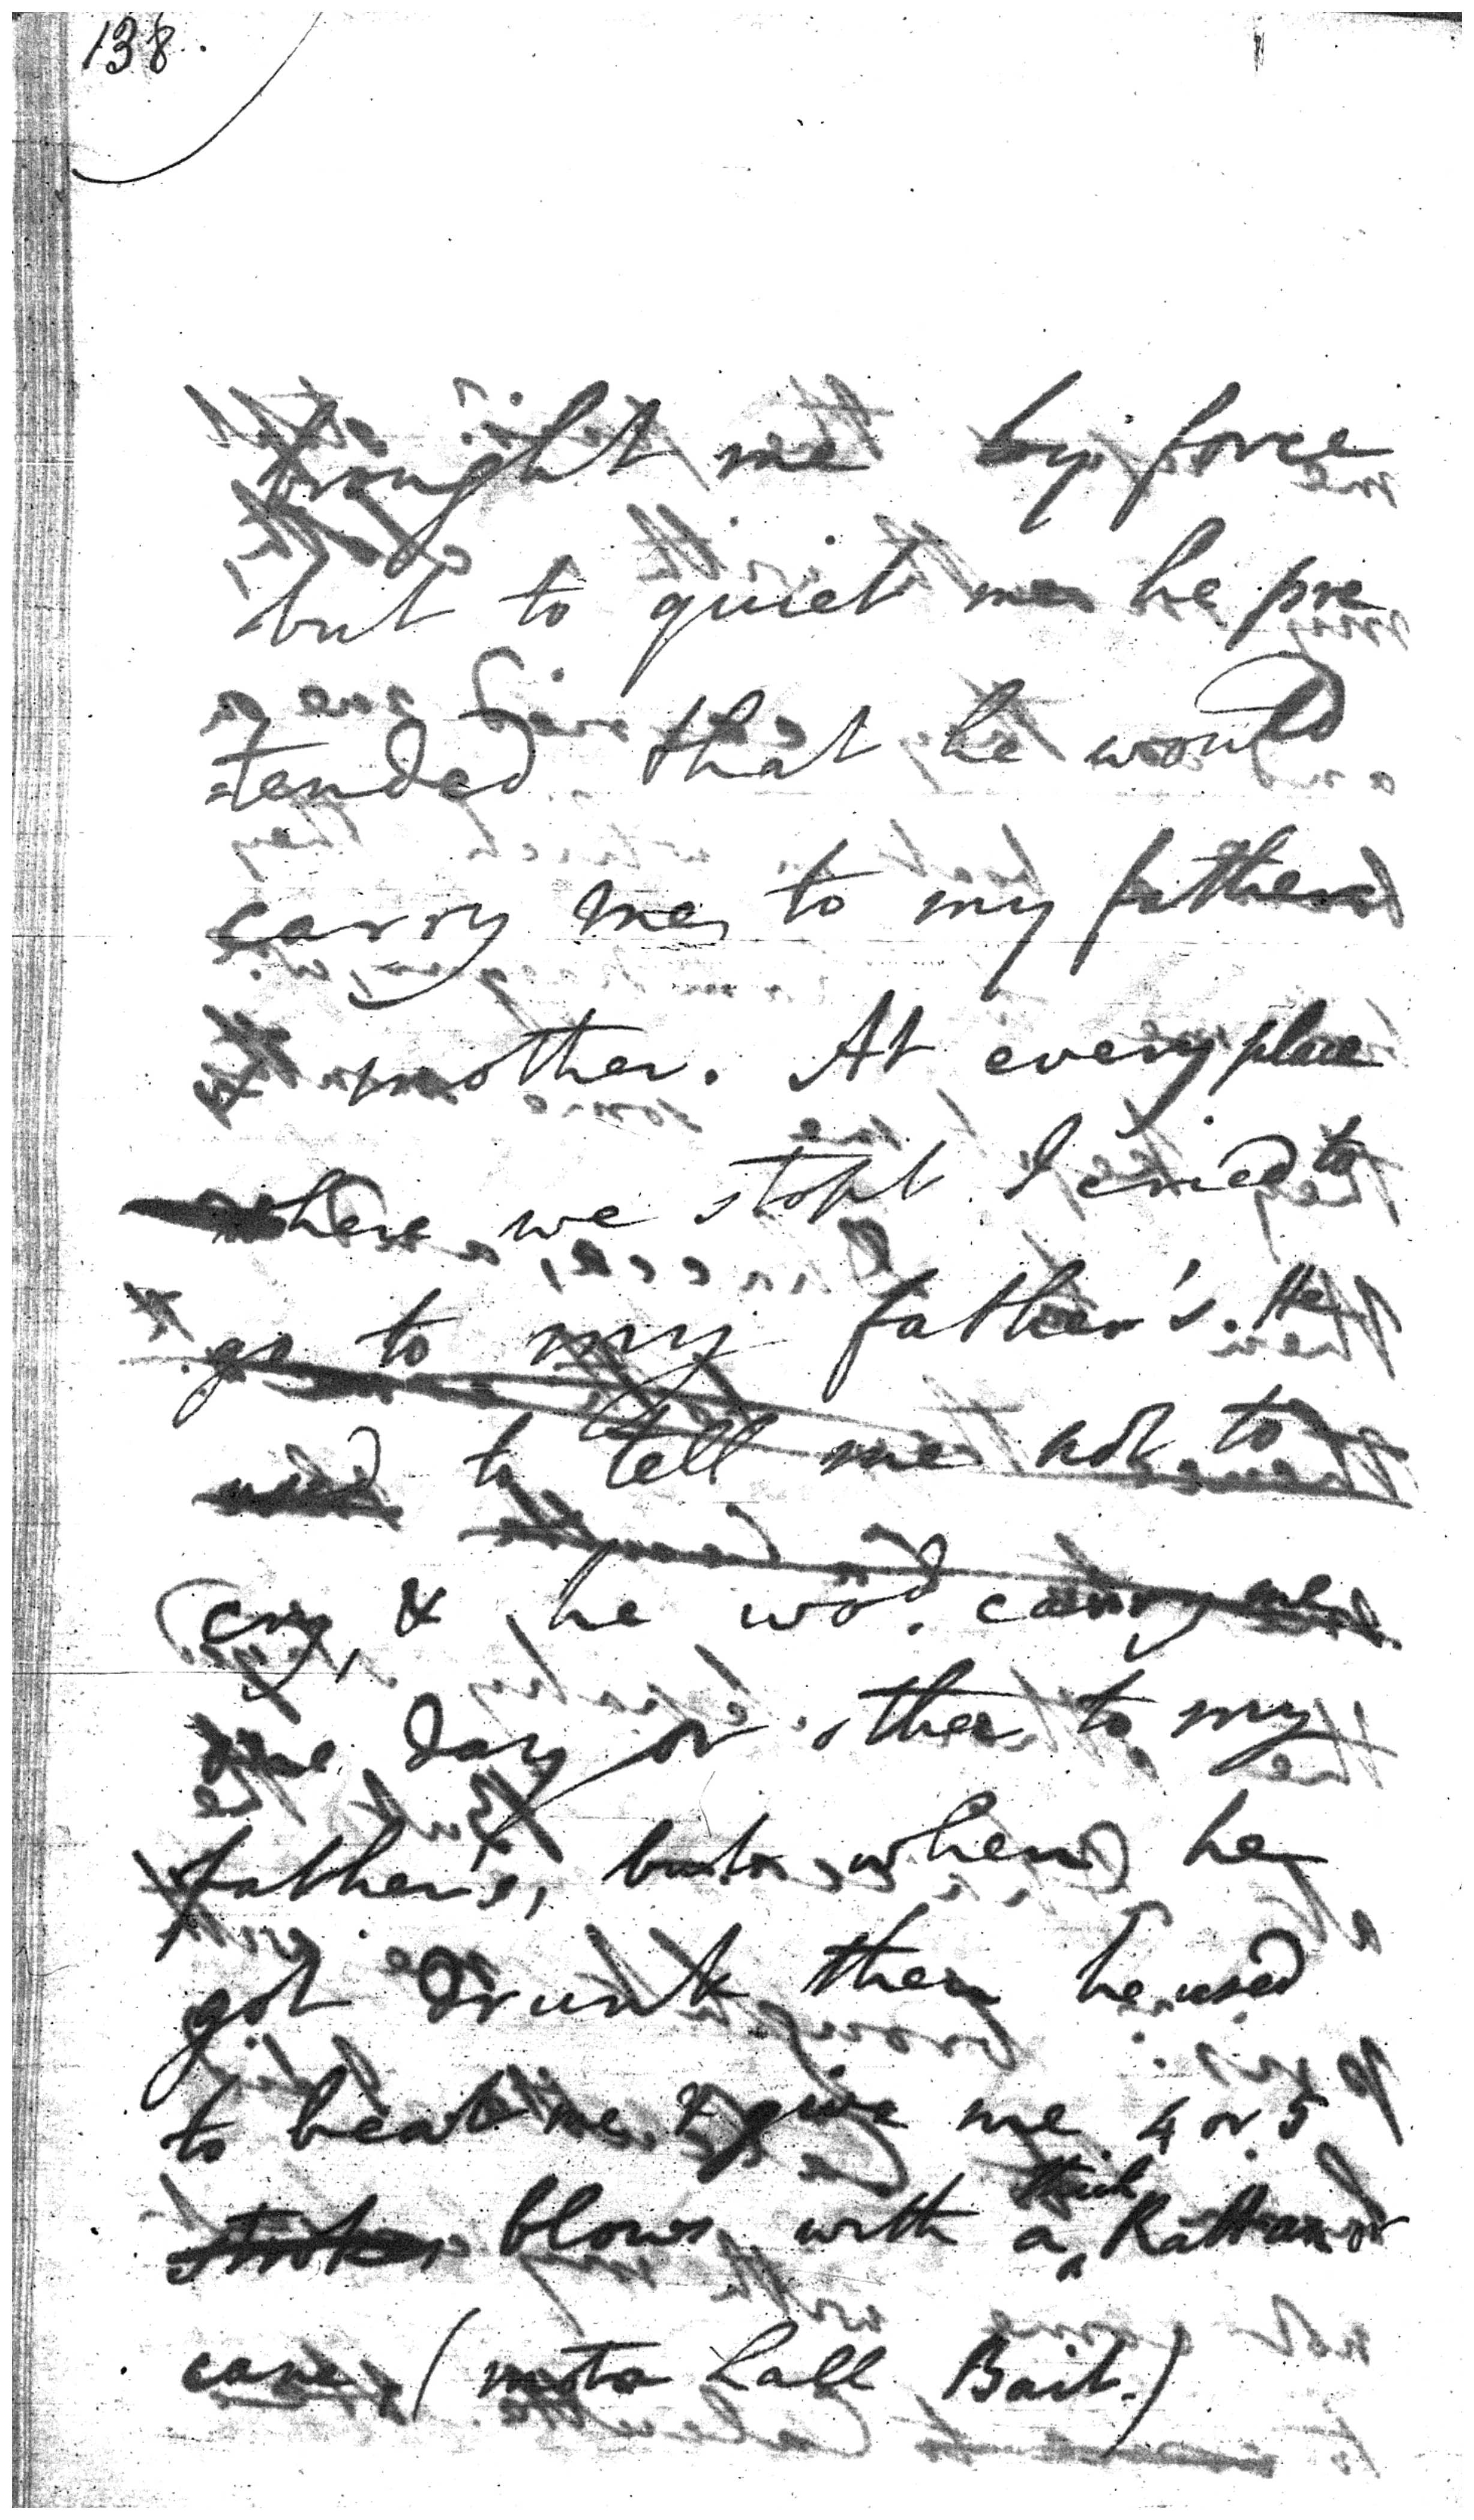 138.
brought me by force
but to quiet me he pre
=tended that he would
carry me to my father
& mother. At every place
where we stopt I cried to
go to my father's. He
used to tell me not to
cry, & he wod. carry me
one day or other to my
father's, but when he
got drunk then he used
to beat me & give me 4 or 5
blows with a thick Rattan or
cane (mota lall Bait.)